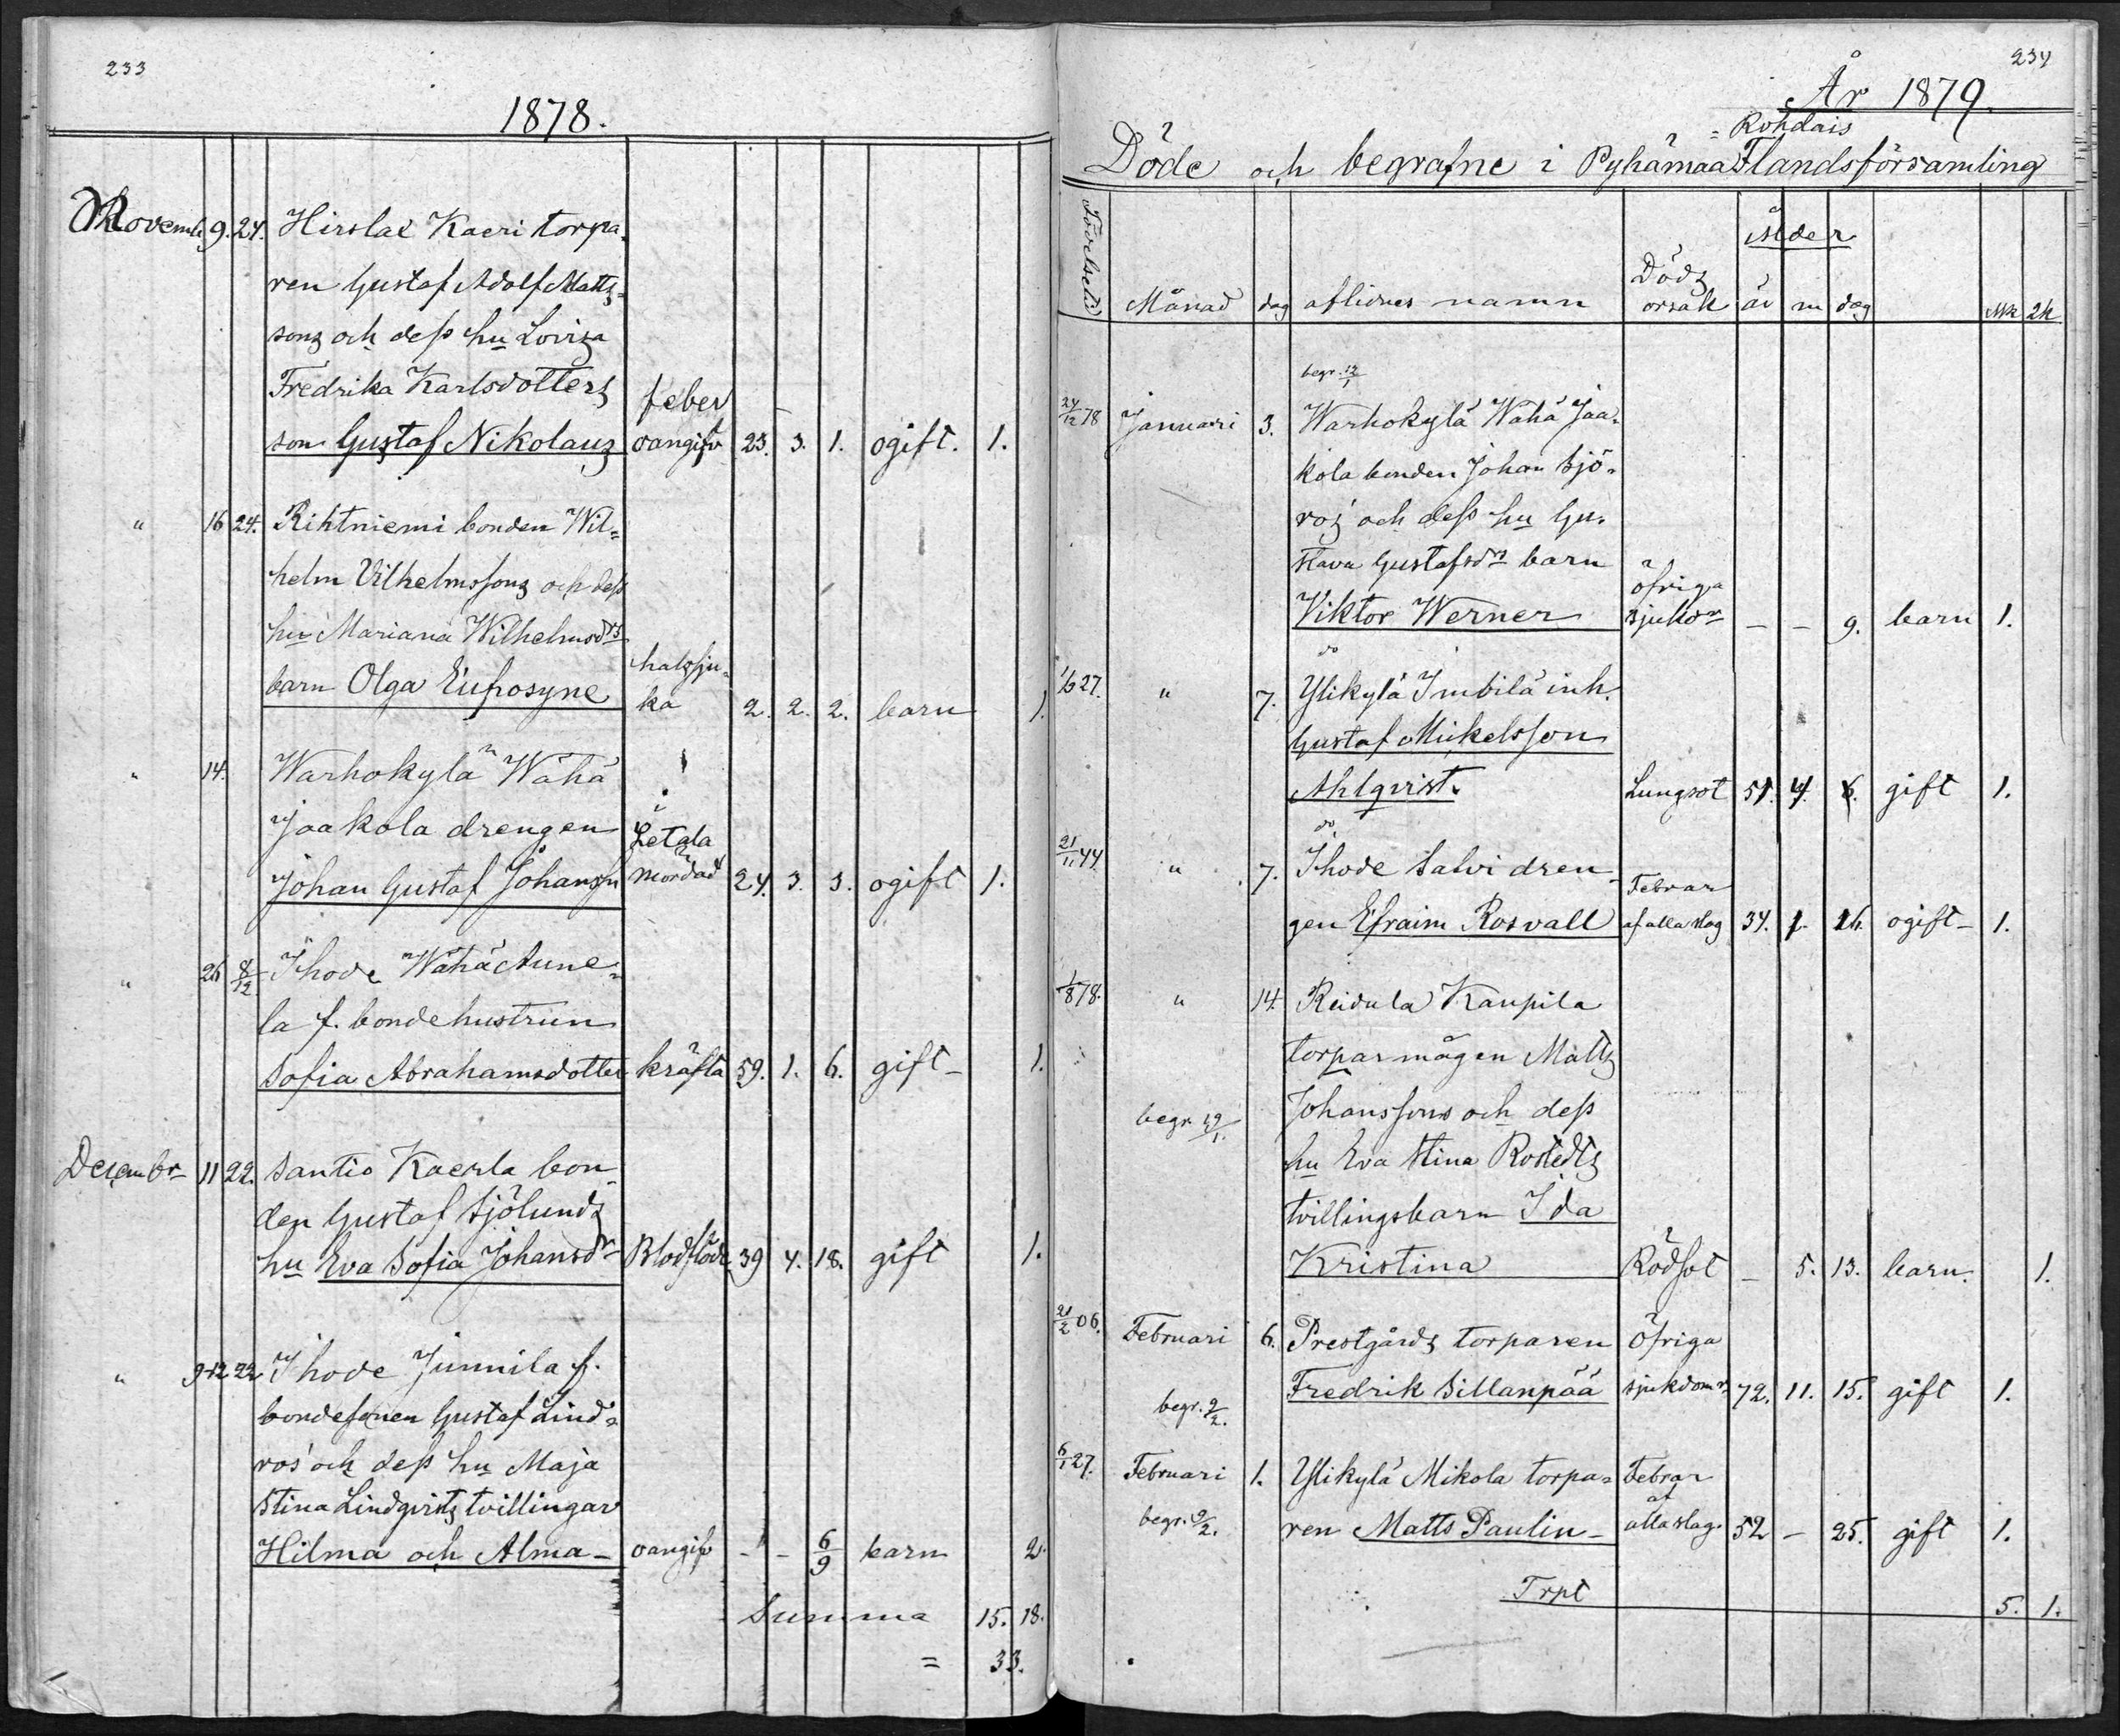 233
1878.
Novemb. 9. 24. Hirslax Kaeri torpa-
ren Gustaf Adolf Matts-
sons och dess hu Lovisa
Fredrika Karlsdotters
feber
son Gustaf Nikolaus oangifv 23. 3. 1. ogift. 1.
" 16 24. Rihtniemi bonden Wil=
helm Vilhelmssons och dess
hu Mariana Wilhelmsdrs
halssju-
barn Olga Eufrosyne ka 2. 2. 2. barn 1.
" 14. Warhokylä Wähä
Jaakola drengen i Letala
Johan Gustaf Johansn mördad 24. 3. 3. ogift 1.
" 26 8/12 Ihode Wähä Aune-
la f. bondehustrun
Sofia Abrahamsdotter kräfta 59. 1. 6. gift 1.
Decembr 11 22. Santio Kaerla bon-
den Gustaf Sjölunds
hu Eva Sofia Johansdr Blodflöde 39 4. 18. gift 1.
" 9-12 22 Ihode Junnila f.
bondesonen Gustaf Lind-
ros' och dess hu Maja
Stina Lindqvists tvillingar
Hilma och Alma - oangifv - - 6/9 barn 2.
Summa 15. 18.
= 33.
234
År 1879.
= Rohdais
Döde och begrafne i Pyhämaa Flandsförsamling
Födelsetid Månad dag aflidnes namn Döds orsak Ålder år m dag Mk 2k
begr. 12/1
24/12 78 Januari 3. Warhokylä Wähä Jaa-
kola bonden Johan Sjö-
ros' och dess hu Gu-
stava Gustafsdrs barn
öfriga
Viktor Werner sjukdr - - 9. barn 1.
do
1/9 27. " 7. Ylikylä Imbilä inh.
Gustaf Mickelsson
Ahlqvist. Lungsot 51. 4. 6. gift 1.
do
21/11 44 " 7. Ihode Salvi dren-
Febrar
gen Efraim Rosvall af alla slag 34. 1. 16. ogift - 1.
1/8 78. " 14. Reidula Kaupila
torparmågen Matts
begr 19/1. Johanssons och dess
hu Eva Stina Rostedts
tvillingsbarn Ida
Kristina Rödsot - 5. 13. barn. 1.
21/2 06. Februari 6. Prestgårds torparen Öfriga
begr. 9/2. Fredrik Sillanpää sjukdomr 72. 11. 15. gift 1.
6/1 27. Februari 1. Ylikylä Mikola torpa- Febrar af
begr. 9/2. ren Matts Paulin - alla slag. 52 - 25. gift 1.
Trpt 5. 1.